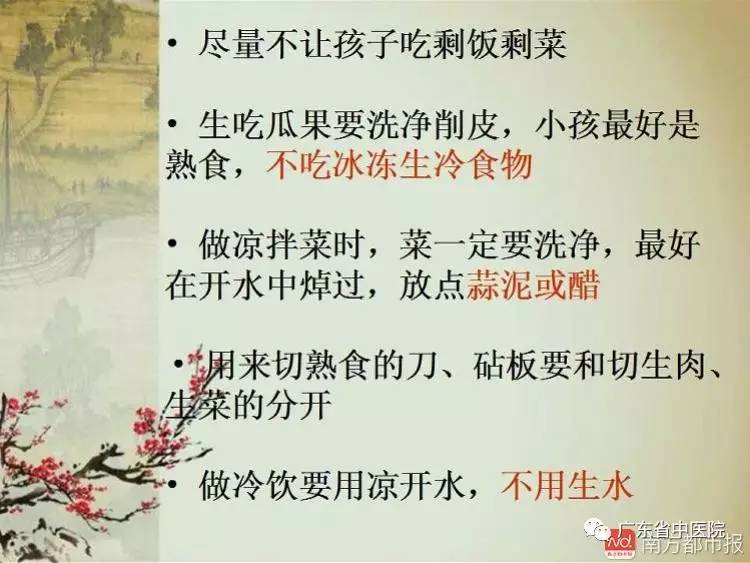 • 尽量不让孩子吃剩饭剩菜
• 生吃瓜果要洗净削皮，小孩最好是
熟食，不吃冰冻生冷食物
• 做凉拌菜时，菜一定要洗净，最好
在开水中焯过，放点蒜泥或醋
• 用来切熟食的刀、砧板要和切生肉、
生菜的分开
• 做冷饮要用凉开水，不用生水
广东省中医院
南方都市报